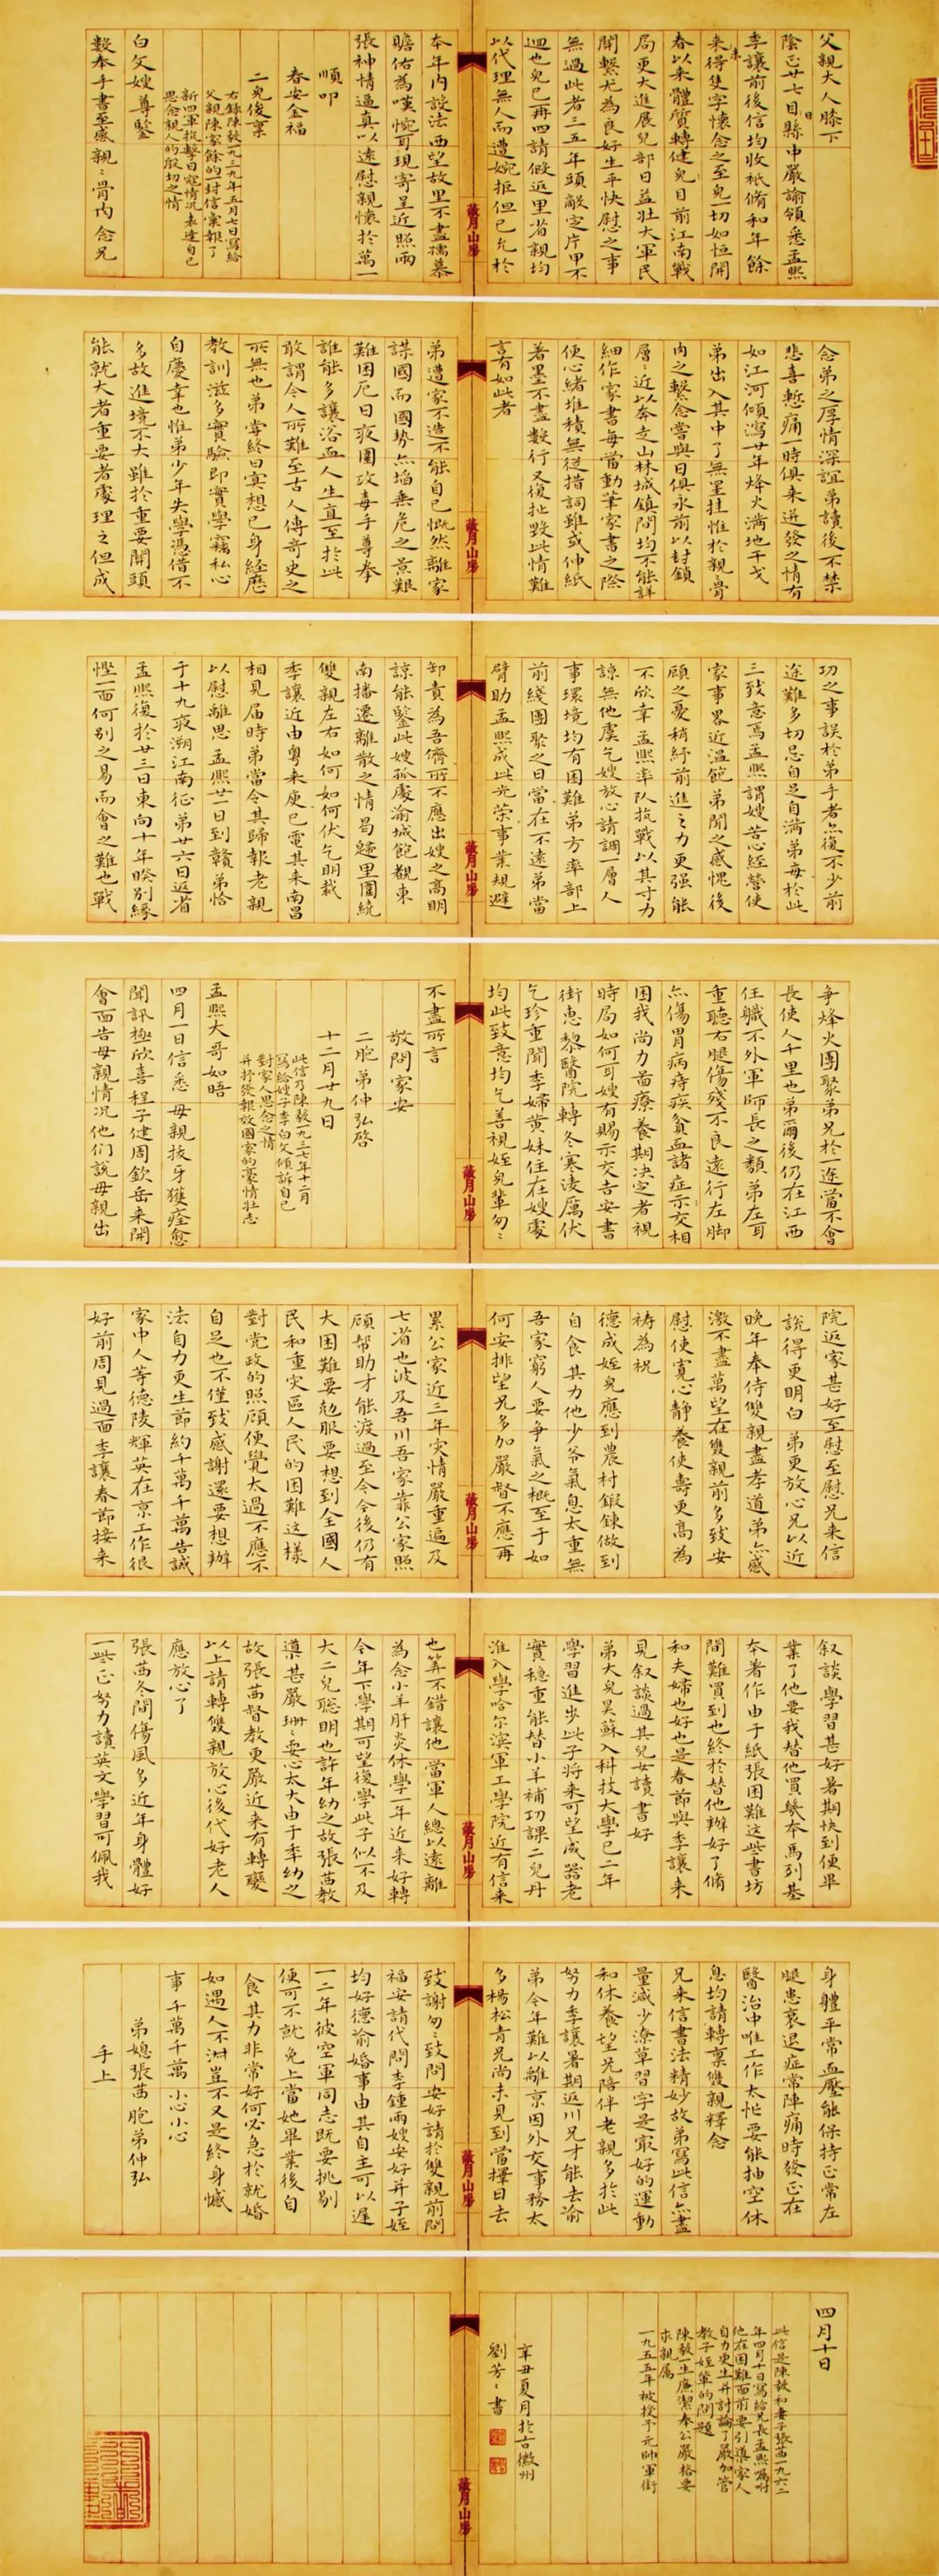 父親大人膝下
陰正廿七日縣中嚴諭領悉孟熙
季讓前後信均收祇脩和年餘
未来得隻字懷念之至兒一切如恒開
春以来體質轉健兒目前江南戰
局更大進展兒部日益壯大軍民
關繫尤為良好生平快慰之事
無過此者三五年頭敵定片甲不
迴也兒已再四請假返里省親均
以代理無人而遭婉拒但已允於
本年内設法西望故里不盡孺慕
瞻佑為嘆惋可現寄呈近照兩
張神情逼真以遠慰親懷於萬一
順叩
春安金福
二兒俊稟
右録陳毅一九三九年五月七日寫給
父親陳家餘的一封信彙報了
新四軍抗擊日寇情況表達自己
思念親人的殷切之情
白文嫂尊鑒
數奉手書至感親〻骨肉念兄
念弟之厚情深誼弟讀後不禁
悲喜慙痛一時俱来迸發之情有
如江河傾瀉廿年烽火滿地干戈
弟出入其中了無罣挂惟於親〻骨
肉之繫念嘗與日俱永前以封鎖
層〻近以奔走山林城鎮間均不能詳
細作家書每當動筆家書之際
便心緒堆積無從措詞雖或伸紙
著墨不盡數行又復扯毀此情難
言有如此者
弟遭家不造不能自已慨然離家
謀國而國勢亦瀕垂危之景艱
難困厄日夜圍攻毒手尊拳
誰能多讓浴血人生直至於此
敢謂今人所難至古人傳奇史之
所無也弟嘗終日冥想已身經歷
教訓滋多實驗即實學竊私心
自慶幸也惟弟少年失學憑借不
多故進境不大雖於重要開頭
能就大者重要者處理之但成
功之事誤於弟手者亦復不少前
途難多切忌自足自滿弟每於此
三致意焉孟熙謂嫂苦心經營使
家事畧近溫飽弟聞之感愧後
顧之憂稍紓前進之力更強能
不欣幸孟熙率队抗戰以其寸力
諒無他虞乞嫂放心請調一層人
事環境均有困難弟方率部上
前綫團聚之日當在不遠弟當
臂助孟熙成此光榮事業規避
卸責為吾儕所不應出嫂之高明
諒能鑒此嫂孤處渝城飽觀東
南播遷離散之情曷魅里圍繞
雙親左右如何如何伏乞明裁
季讓近由粵来庾已電其来南昌
相見届時弟當令其歸報老親
以慰離思孟熙廿一日到贛弟恰
于十九夜溯江南征弟廿六日返省
孟熙復於廿三日東向十年暌别緣
慳一面何别之易而會之難也戰
争烽火團聚弟兄於一途當不會
長使人千里也弟爾後仍在江西
任職不外軍師長之類弟左耳
重聽右腿傷殘不良遠行左脚
亦傷胃病痔疾貧血諸症亦交相
困我尚力啬療養期决定者視
時局如何可嫂有賜示交吉安書
街惠黎醫院轉冬寒凄厲伏
乞珍重聞季婦黄妹住在嫂處
均此致意均乞善視姪兒輩匆〻
不盡所言
敬問家安
二胞弟仲弘啓
十二月廿九日
此信乃陳毅一九三七年十二月
寫給嫂子李白文傾訴自己
對家人思念之情
并抒發報效國家的豪情壯志
孟熙大哥如晤
四月一日信悉 母親拔牙獲痊愈
聞訊極欣喜程子健周欽岳来開
會面告母親情况他們說母親出
院返家甚好至慰至慰兄来信
說得更明白 弟更放心兄以近
晚年奉侍雙親盡孝道弟亦感
激不盡萬望在雙親前多致安
慰使寬心靜養使壽更高為
祷為祝
德成姪兒應到農村鍛鍊做到
自食其力他少爷氣息太重無
吾家窮人要争氣之概至于如
何安排望兄多加嚴督不應再
累公家近三年灾情嚴重遍及
七省也波及吾川吾家靠公家照
顧帮助才能渡過至今今後仍有
大困難要勉服要想到全國人
民和重灾區人民的困難这樣
對党政的照顧便覺太過不應不
自足也不僅致感謝還要想辦
法自力更生節约千萬千萬告誡
家中人等德陵輝英在京工作很
好前周見過面季讓春節接来
叙談學習甚好暑期快到便畢
業了他要我替他買幾本馬列基
本著作由于紙張困難这些書坊
間難買到也終於替他辦好了脩
和夫婦也好也是春節與季讓来
見叙談過其兒女讀書好
弟大兒昊蘇入科技大學已二年
學習進步此子将来可望成器老
實穩重能替小羊補功課二兒丹
淮入學哈尔滨軍工學院近有信来
也算不錯讓他 當軍人總以遠離
為念小羊肝炎休學一年近来好轉
今年下學期可望復學此子似不及
大二兒聰明也許年幼之故張茜教
導甚嚴珊〻耍心太大由于年幼之
故張茜督教更嚴近来有轉變
以上請轉雙親放心後代好老人
應放心了
張茜冬間傷風多近年身體好
一些正努力讀英文學習可佩我
身體平常血壓能保持正常左
腿患衰退症常陣痛時發正在
醫治中唯工作太忙要能抽空休
息均請轉稟雙親釋念
兄来信書法精妙故弟寫此信亦盡
量减少潦草習字是最好的運動
和休養望兄陪伴老親多於此
努力季讓暑期返川兄才能去渝
弟今年難以離京因外交事務太
多楊松青兄尚未見到當擇日去
致謝匆〻致問安好請於雙親前問
福安請代問李鍾雨嫂安好并子姪
均好德渝婚事由其自主可以遲
一二年彼空軍同志既要挑剔
便可不就免上當她畢業後自
食其力非常好何必急於就婚
如遇人不淑豈不又是終身憾
事千萬千萬小心小心
弟媳張茜胞弟仲弘
手上
四月十日
此信是陳毅和妻子張茜一九六二
年四月十日寫給兄長孟熙囑咐
他在困難面前要引導家人
自力更生并討論了嚴加管
教子姪輩的問題
陳毅一生廉潔奉公嚴格要
求親屬
一九五五年被授予元帥軍銜
辛丑夏月於古徽州
劉芳〻書